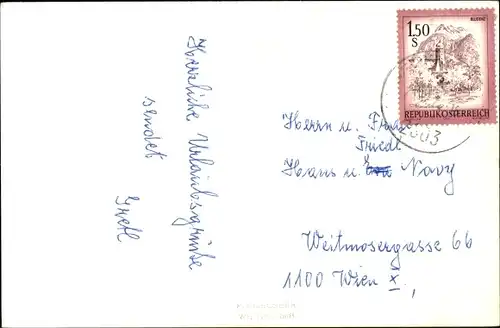 Herzliche Urlaubsgrüße
sendet
Gretl
1.50
S
BLUDENZ
REPUBLIK ÖSTERREICH
Herrn u. Frau
Friedl
Hans u. Navy
Weitmosergasse 66
1100 Wien X.,